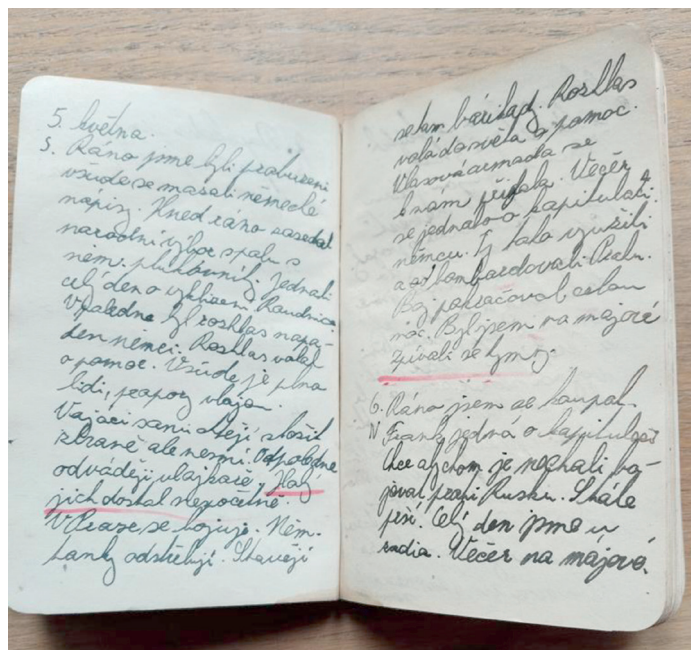 5. května.
S. Ráno jsme byli probuzeni
všude se mazali německé
nápisy. Hned ráno zasedal
narodní výbor spolu s
něm. plukovníky. Jednali
celý den o vyklizení Roudnice
V poledne byl rozhlas napa-
den němci. Rozhlas volal
o pomoc. Všude je plno
lidí, prapory vlajou.
Vojáci sami chtějí složit
zbraně ale nesmí. Odpoledne
odvádějí vlajkaře, Hla
jich dostal nespočetně.
V Praze se bojuje. Něm.
tanky odstřelují. Stavějí
se tam barikády. Rozhlas
volá do světa o pomoc.
Vlasová armada se
k nám přidala. Večer
se jednalo o kapitulaci
němcu. Ty toho využili
a od bombardovali Prahu.
Boj pokračoval celou
noc. Byl jsem na májové
zpívali se hymny.
6. Ráno jsem se koupal.
N Frank jedná o kapitulaci
Chce abychom je nechali bo-
jovat proti Rusku. Stále
prší. Celý den jsme u
radia. Večer na májové.